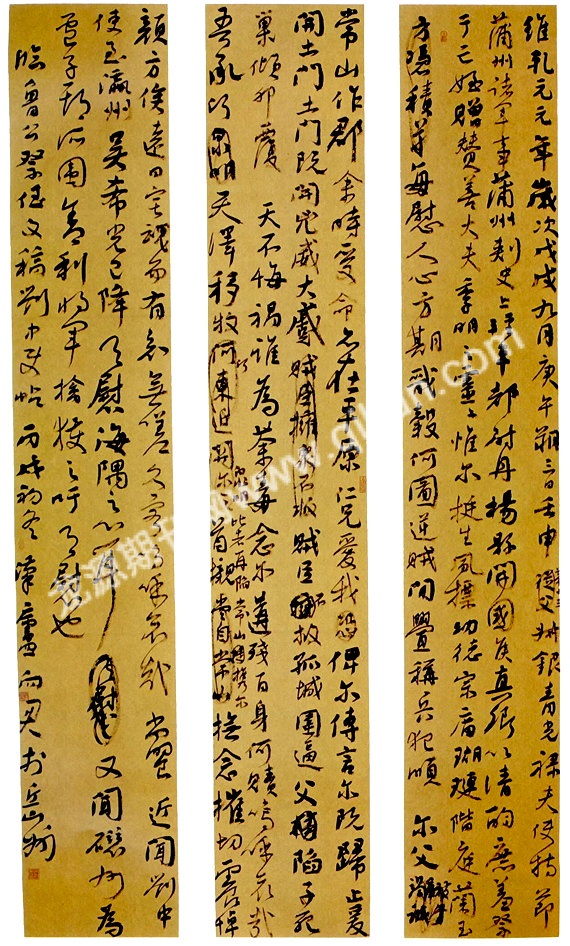 維乾元元年歲次戊戌九月庚午朔三日壬申從父叔銀青光祿夫使持節
蒲州諸軍事蒲州刺史上輕車都尉丹楊縣開國侯真卿以清酌庶羞祭
于亡姪贈贊善大夫季明之靈惟爾挺生夙標幼德宗廟瑚璉階庭蘭玉
方憑積善每慰人心方期戩穀何圖逆賊閒釁稱兵犯順 爾父
常山作郡余時受命亦在平原仁兄愛我恐俾爾傳言爾既歸止爰
開土門土門既開兇威大蹙賊臣擁眾不救賊臣不救孤城圍逼父陷子死
巢傾卵覆 天不悔禍誰為荼毒念爾遘殘百身何贖嗚呼哀哉
吾承 天澤移牧河東近 泉明比者再陷常山攜爾首櫬 嘗自常山 撫念摧切震悼
顏方俟遠日宅魂而有知無嗟久客嗚呼哀哉尚饗 近聞劉中
使至瀛州吳希光已降足慰海隅之心耳 又聞磁州為
盧子期所圍舍利將軍擒獲之吁足慰也
臨魯公祭侄文稿劉中使帖 丙戌初冬 於岳州
龙源期刊网www.qikan.com